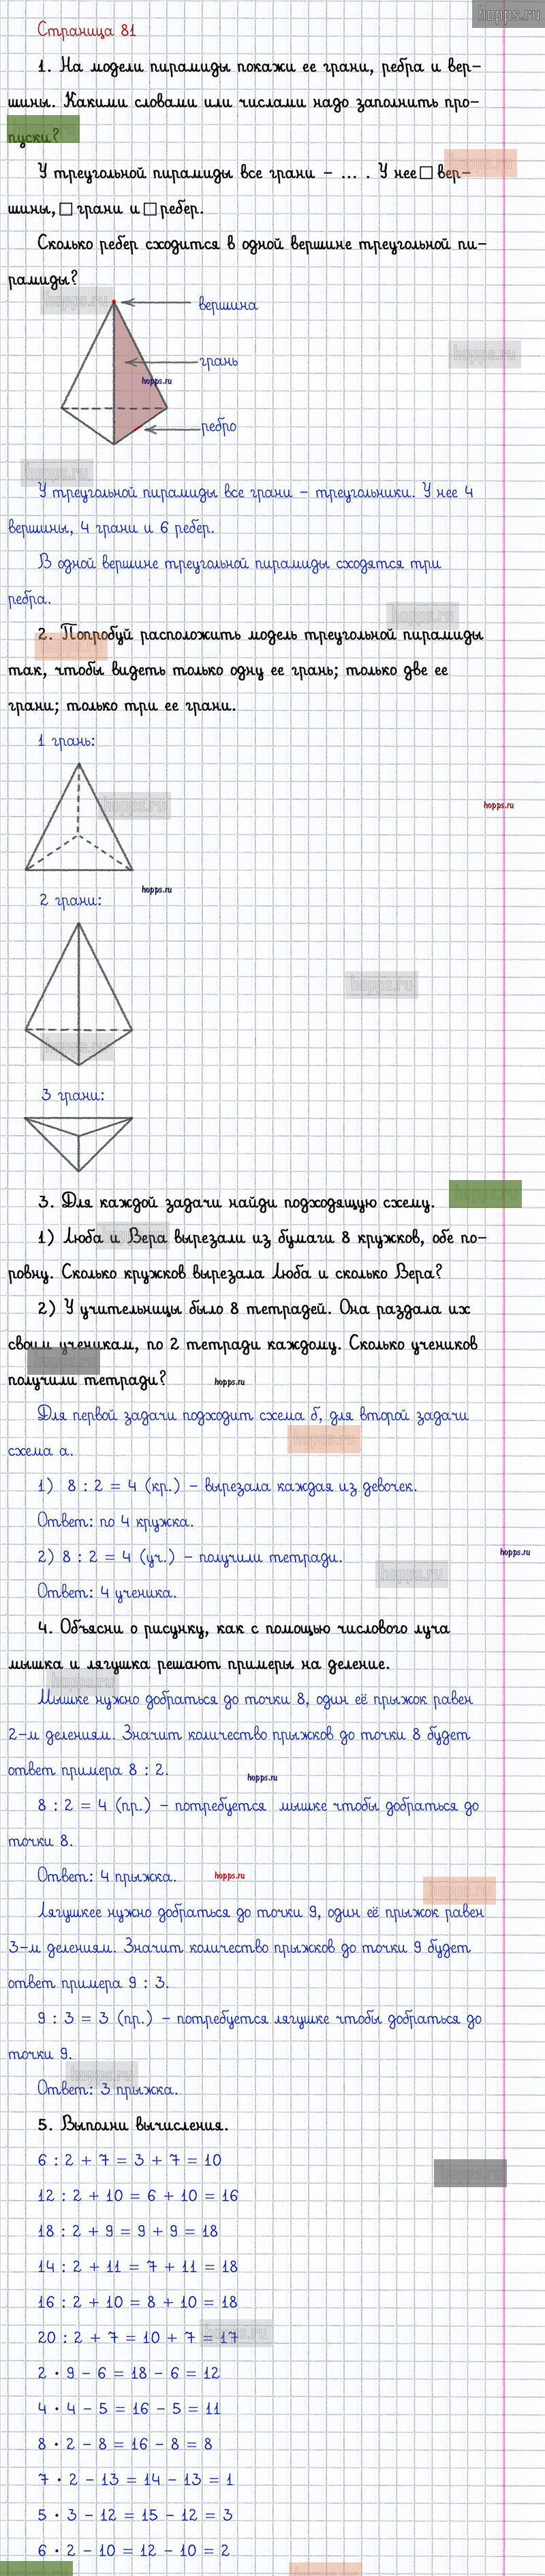 hopps.ru
Страница 81
1. На модели пирамиды покажи ее грани, ребра и вер-
шины. Какими словами или числами надо заполнить про-
пуски?
hopps.ru
У треугольной пирамиды все грани – ... . У нее □ вер-
шины, □ грани и □ ребер.
Сколько ребер сходится в одной вершине треугольной пи-
рамиды?
hopps.ru
вершина
hopps.ru
грань
hopps.ru
ребро
hopps.ru
У треугольной пирамиды все грани – треугольники. У нее 4
вершины, 4 грани и 6 ребер.
В одной вершине треугольной пирамиды сходятся три
ребра.
hopps.ru
2. Попробуй расположить модель треугольной пирамиды
так, чтобы видеть только одну ее грань; только две ее
грани; только три ее грани.
1 грань:
hopps.ru
hopps.ru
hopps.ru
2 грани:
hopps.ru
hopps.ru
3 грани:
hopps.ru
3. Для каждой задачи найди подходящую схему.
1) Люба и Вера вырезали из бумаги 8 кружков, обе по-
ровну. Сколько кружков вырезала Люба и сколько Вера?
2) У учительницы было 8 тетрадей. Она раздала их
своим ученикам, по 2 тетради каждому. Сколько учеников
получили тетради?
hopps.ru
Для первой задачи подходит схема б, для второй задачи
схема а.
hopps.ru
1) 8 : 2 = 4 (кр.) – вырезала каждая из девочек.
Ответ: по 4 кружка.
hopps.ru
2) 8 : 2 = 4 (уч.) – получили тетради.
hopps.ru
Ответ: 4 ученика.
4. Объясни о рисунку, как с помощью числового луча
мышка и лягушка решают примеры на деление.
hopps.ru
Мышке нужно добраться до точки 8, один её прыжок равен
2-м делениям. Значит количество прыжков до точки 8 будет
ответ примера 8 : 2.
hopps.ru
8 : 2 = 4 (пр.) – потребуется мышке чтобы добраться до
точки 8.
Ответ: 4 прыжка.
hopps.ru
hopps.ru
Лягушкее нужно добраться до точки 9, один её прыжок равен
3-м делениям. Значит количество прыжков до точки 9 будет
ответ примера 9 : 3.
9 : 3 = 3 (пр.) – потребуется лягушке чтобы добраться до
точки 9.
hopps.ru
Ответ: 3 прыжка.
5. Выполни вычисления.
6 : 2 + 7 = 3 + 7 = 10
hopps.ru
12 : 2 + 10 = 6 + 10 = 16
18 : 2 + 9 = 9 + 9 = 18
14 : 2 + 11 = 7 + 11 = 18
16 : 2 + 10 = 8 + 10 = 18
20 : 2 + 7 = 10 + 7 = 17
hopps.ru
2 · 9 – 6 = 18 – 6 = 12
4 · 4 – 5 = 16 – 5 = 11
8 · 2 – 8 = 16 – 8 = 8
7 · 2 – 13 = 14 – 13 = 1
5 · 3 – 12 = 15 – 12 = 3
6 · 2 – 10 = 12 – 10 = 2